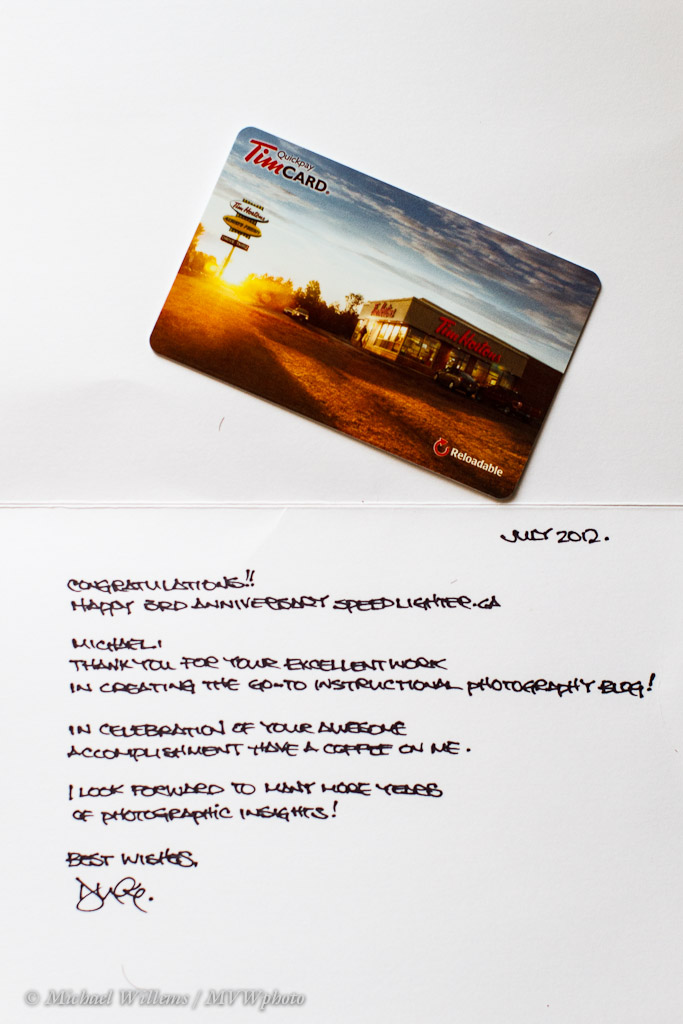 Quickpay
TimCARD.
Tim Hortons
Tim Hortons
Tim Hortons
Reloadable
JULY 2012.
CONGRATULATIONS!!
HAPPY 3RD ANNIVERSARY SPEEDLIGHTER.CA
MICHAEL,
THANK YOU FOR YOUR EXCELLENT WORK
IN CREATING THE GO-TO INSTRUCTIONAL PHOTOGRAPHY BLOG!
IN CELEBRATION OF YOUR AWESOME
ACCOMPLISHMENT HAVE A COFFEE ON ME.
I LOOK FORWARD TO MANY MORE YEARS
OF PHOTOGRAPHIC INSIGHTS!
BEST WISHES,
© Michael Willems / MVWphoto